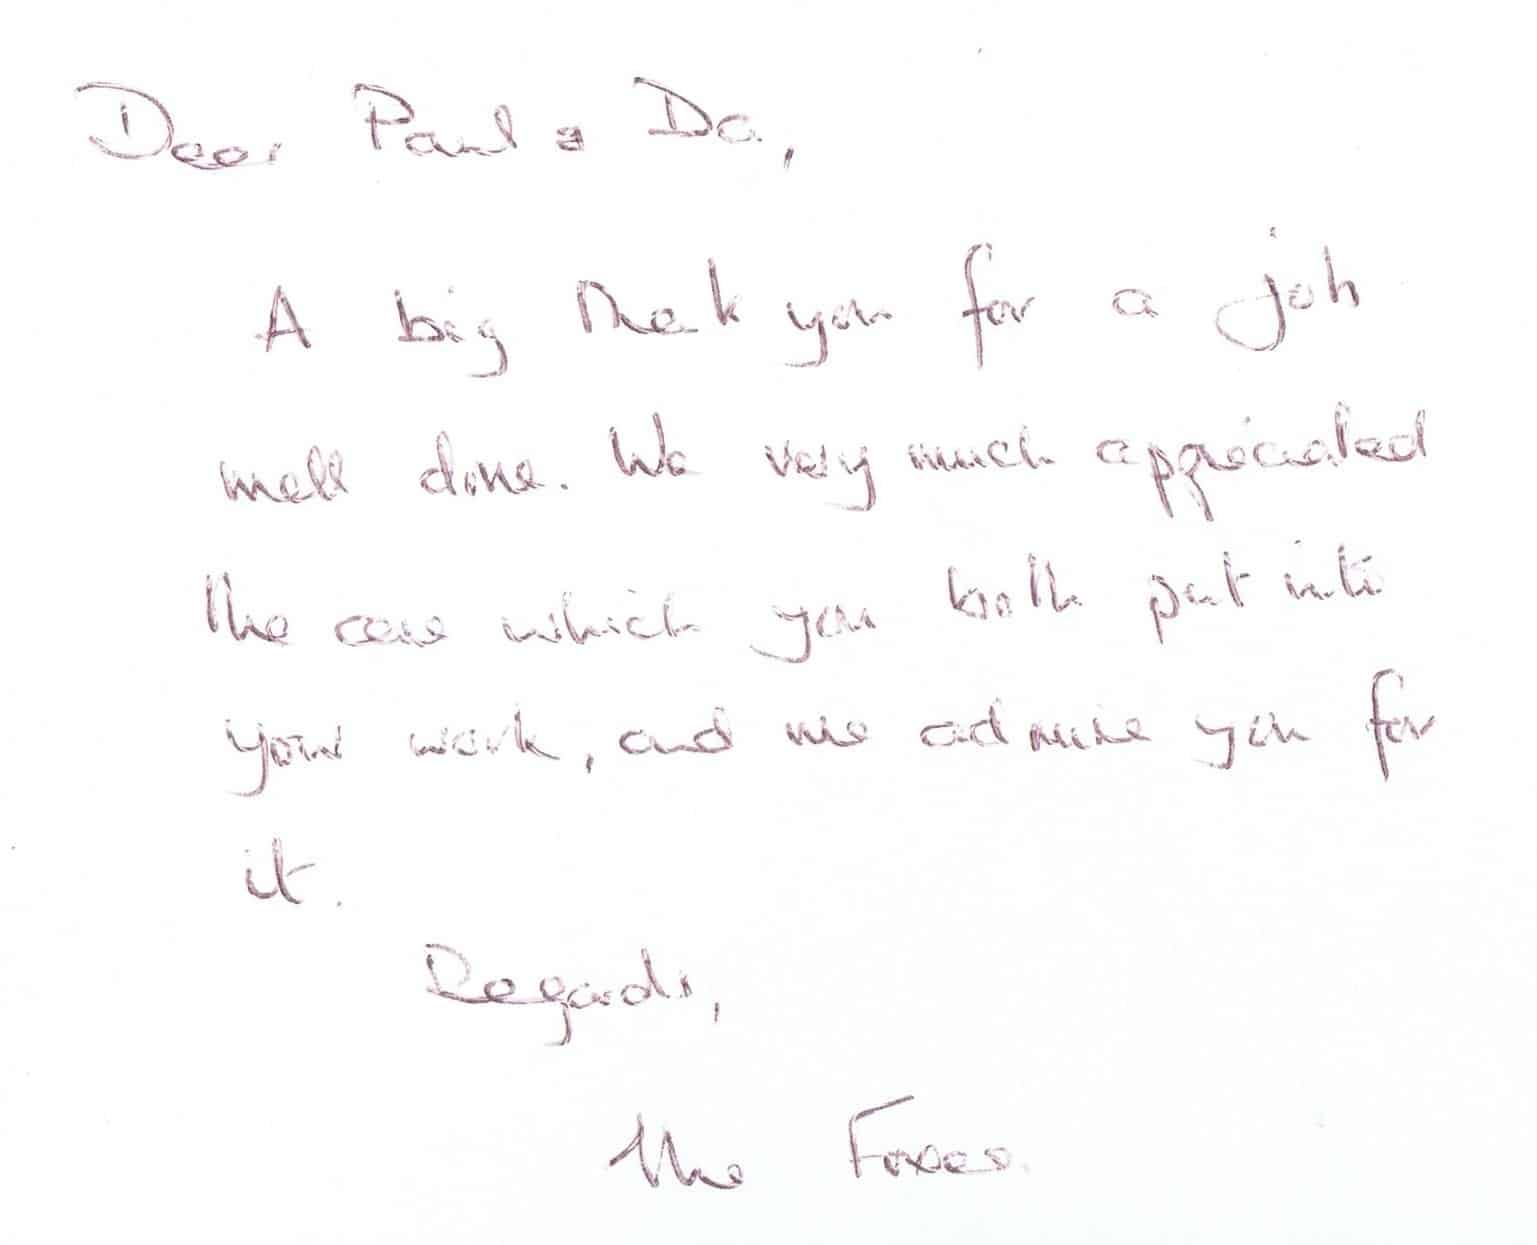 Dear Paul & Da,
A big thank you for a job
well done. We very much appreciated
the care which you both put into
your work, and we admire you for
it.
Regards,
The Foxes.